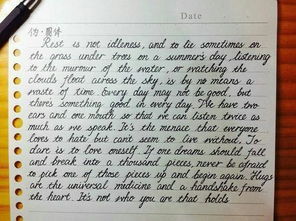 Date
伪·圆体
Rest is not idleness, and to lie sometimes on
the grass under trees on a summer's day, listening
to the murmur of the water, or watching the
clouds float across the sky, is by no means a
waste of time. Every day may not be good, but
there's something good in every day. We have two
ears and one mouth so that we can listen twice as
much as we speak. It's the menace that everyone
loves to hate but can't seem to live without. To
dare is to love oneself. If one dreams should fall
and break into a thousand pieces, never be afraid
to pick one of those pieces up and begin again. Hugs
are the universal medicine and a handshake from
the heart. It's not who you are that holds